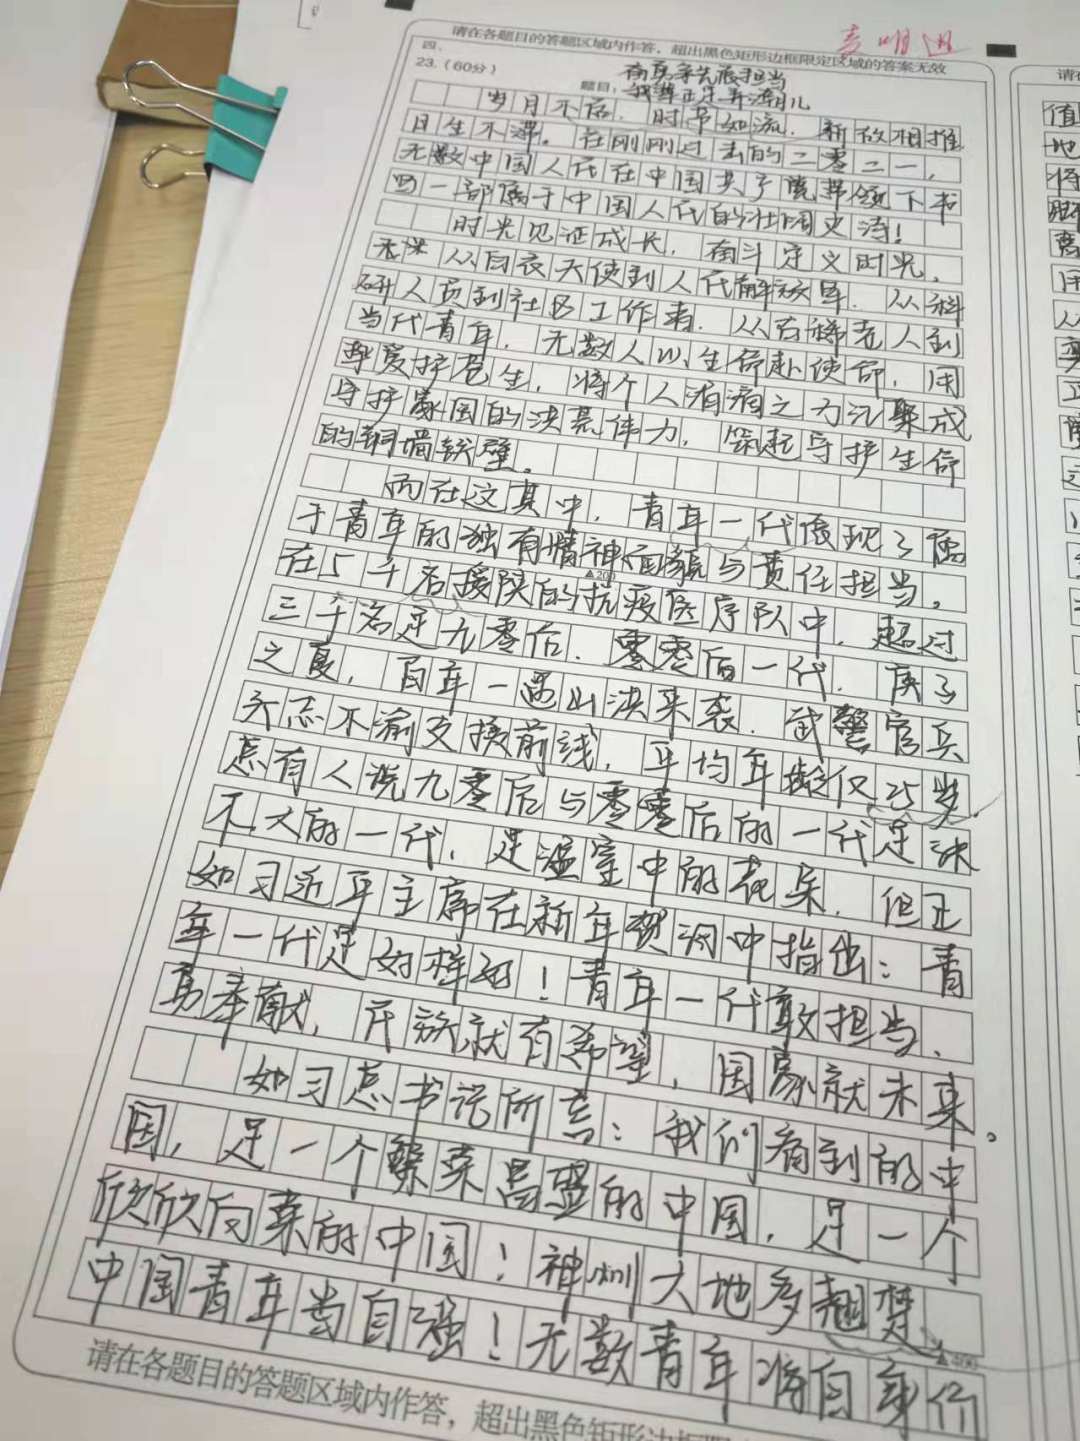 请在各题目的答题区域内作答,超出黑色矩形边框限定区域的答案无效
四、
23.(60分)
题目:
奋勇争先展担当
我辈正是弄潮儿
岁月不居,时节如流,新故相推,
日生不滞。在刚刚过去的二零二一,
无数中国人民在中国共产党带领下书
写一部属于中国人民的壮阔史诗!
时光见证成长,奋斗定义时光,
从白衣天使到人民解放军,从科
研人员到社区工作者,从古稀老人到
当代青年,无数人以生命赴使命,用
挚爱护苍生,将个人涓滴之力汇聚成
守护家国的决然伟力,筑起守护生命
的铜墙铁壁。
而在这其中,青年一代展现了属
于青年的独有精神面貌与责任担当。
▲200
在5千名援陕的抗疫医疗队中,超过
三千名是九零后,零零后一代,庚子
之夏,百年一遇山洪来袭,武警官兵
矢志不渝支援前线,平均年龄仅25岁
总有人说九零后与零零后的一代是
不大的一代,是温室中的花朵,但正
如习近平主席在新年贺词中指出:青
年一代是好样的!青年一代敢担当、
勇奉献,民族就有希望,国家就未来。
如习总书记所言:我们看到的中
国,是一个繁荣昌盛的中国,是一个
欣欣向荣的中国!神州大地多翘楚
▲400
中国青年当自强!无数青年将自身行
请在各题目的答题区域内作答,超出黑色矩形边框限